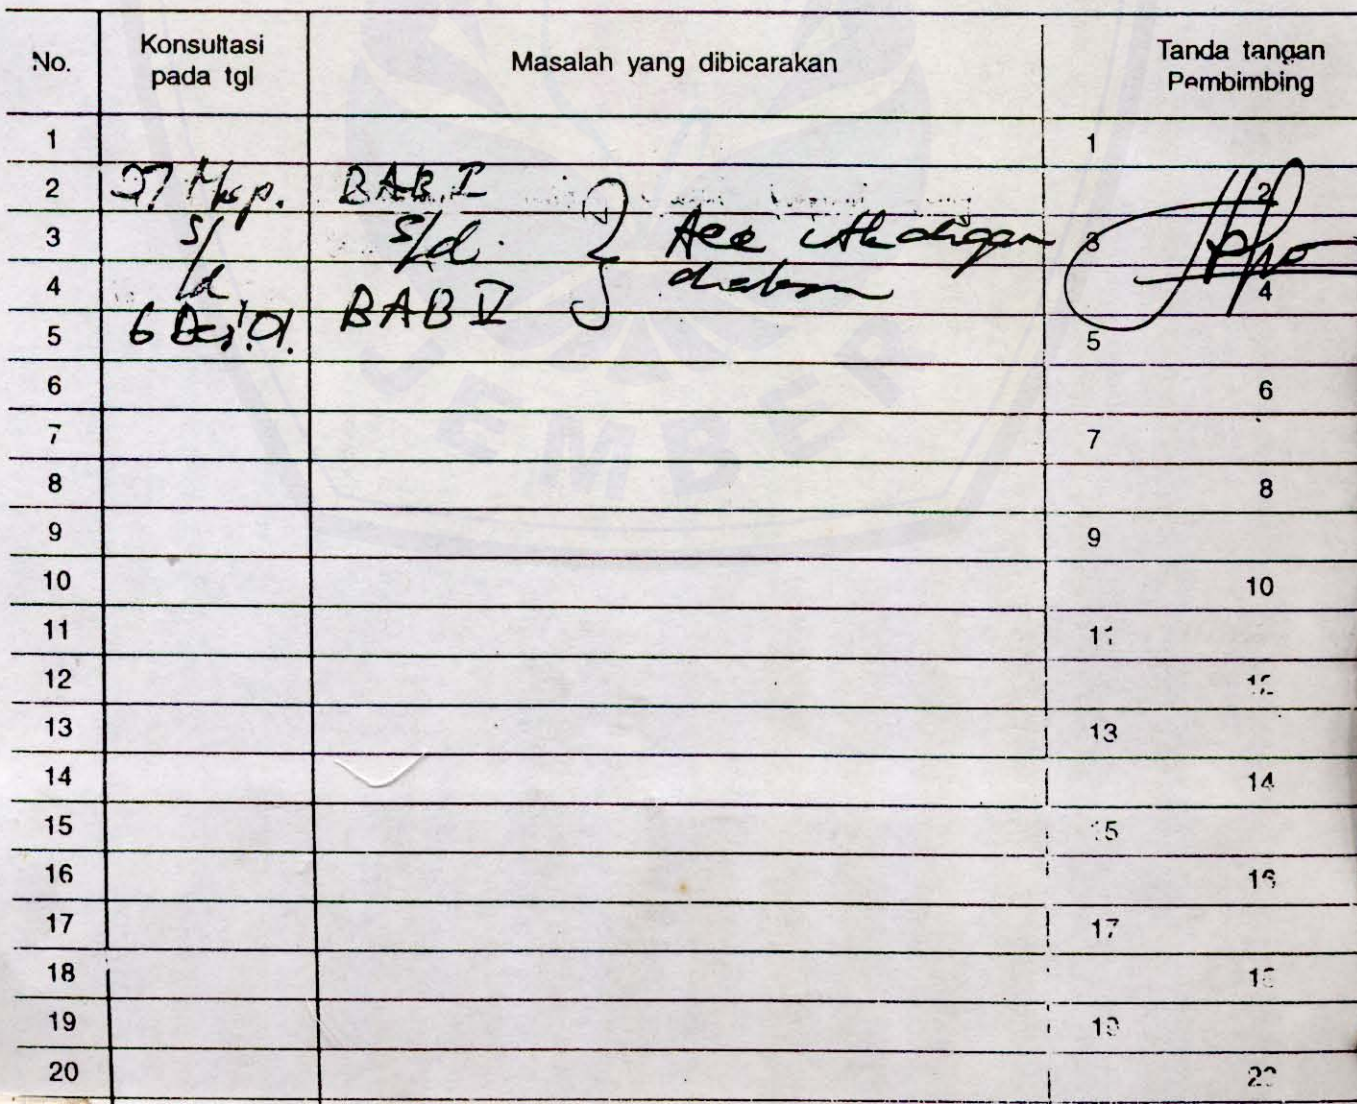 No. Konsultasi pada tgl Masalah yang dibicarakan Tanda tangan Pembimbing
1 1
2 27 BAB I 2
3 s/d s/d Acc 3
4 4
5 6 Des '01. BAB V 5
6 6
7 7
8 8
9 9
10 10
11 11
12 12
13 13
14 14
15 15
16 16
17 17
18 18
19 19
20 20
JEMBER